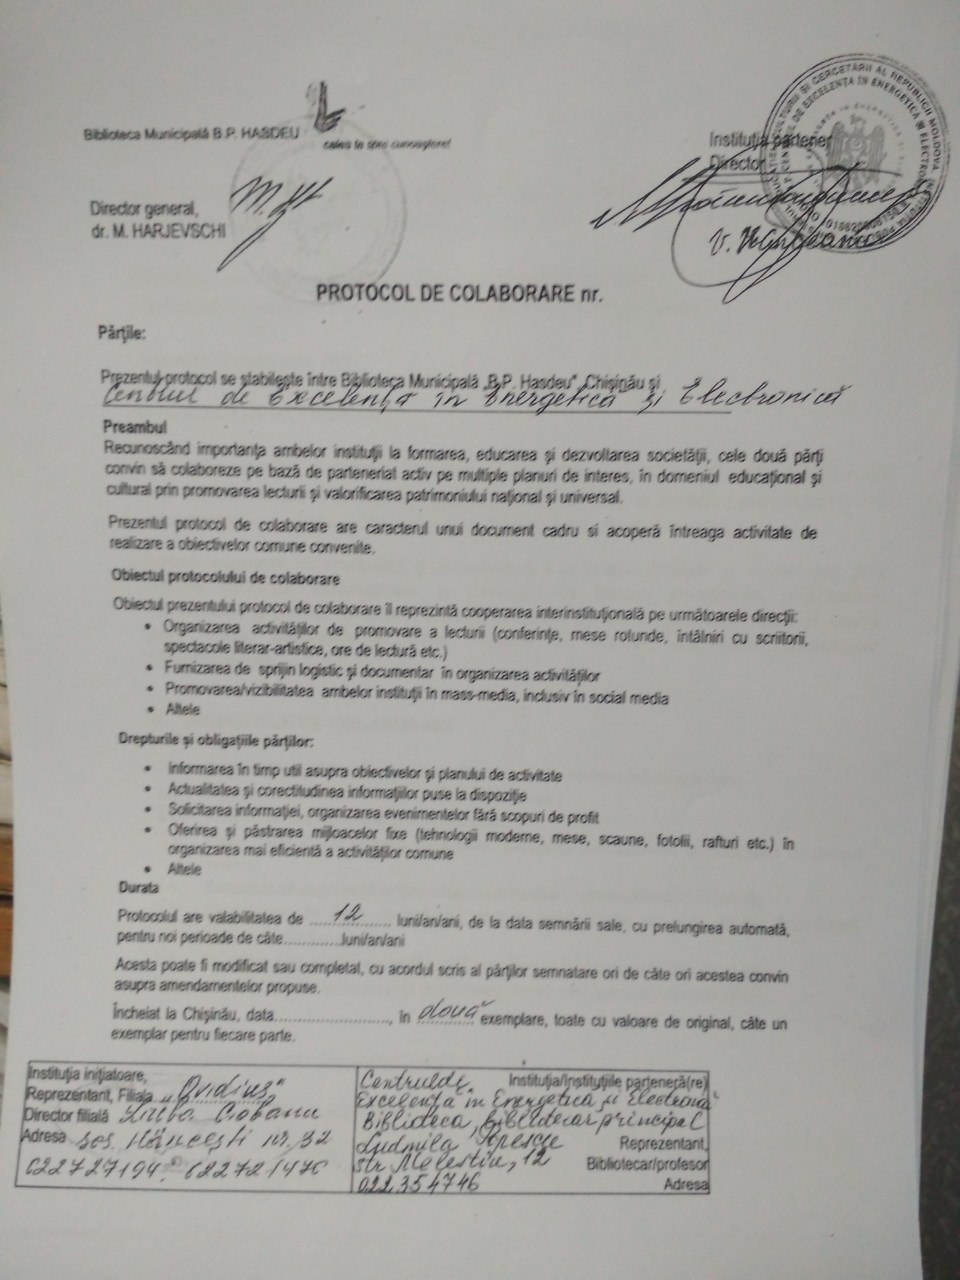 Biblioteca Municipală B.P. HASDEU
calea ta spre cunoaștere!
Instituția partener
Director
Director general,
dr. M. HARJEVSCHI
PROTOCOL DE COLABORARE nr.
Părțile:
Prezentul protocol se stabilește între Biblioteca Municipală „B.P. Hasdeu”, Chișinău și
Centrul de Excelență în Energetică și Electronică
Preambul
Recunoscând importanța ambelor instituții la formarea, educarea și dezvoltarea societății, cele două părți
convin să colaboreze pe bază de parteneriat activ pe multiple planuri de interes, în domeniul educațional și
cultural prin promovarea lecturii și valorificarea patrimoniului național și universal.
Prezentul protocol de colaborare are caracterul unui document cadru si acoperă întreaga activitate de
realizare a obiectivelor comune convenite.
Obiectul protocolului de colaborare
Obiectul prezentului protocol de colaborare îl reprezintă cooperarea interinstituțională pe următoarele direcții:
• Organizarea activităților de promovare a lecturii (conferințe, mese rotunde, întâlniri cu scriitorii,
spectacole literar-artistice, ore de lectură etc.)
• Furnizarea de sprijin logistic și documentar în organizarea activităților
• Promovarea/vizibilitatea ambelor instituții în mass-media, inclusiv în social media
• Altele
Drepturile și obligațiile părților:
• Informarea în timp util asupra obiectivelor și planului de activitate
• Actualitatea și corectitudinea informațiilor puse la dispoziție
• Solicitarea informației, organizarea evenimentelor fără scopuri de profit
• Oferirea și păstrarea mijloacelor fixe (tehnologii moderne, mese, scaune, fotolii, rafturi etc.) în
organizarea mai eficientă a activităților comune
• Altele
Durata
Protocolul are valabilitatea de ......12...... luni/an/ani, de la data semnării sale, cu prelungirea automată,
pentru noi perioade de câte.............luni/an/ani
Acesta poate fi modificat sau completat, cu acordul scris al părților semnatare ori de câte ori acestea convin
asupra amendamentelor propuse.
Încheiat la Chișinău, data.........................., în două exemplare, toate cu valoare de original, câte un
exemplar pentru fiecare parte.
Instituția inițiatoare,
Reprezentant, Filiala „Ovidius”
Director filială Ciobanu
Adresa șos. Hâncești nr. 32
022727194
Centrul de Instituția/Instituțiile parteneră(re)
Excelență în Energetică și Electronică
Biblioteca, bibliotecar principal
Ludmila Reprezentant,
str. Melestiu, 12 Bibliotecar/profesor
022354746 Adresa